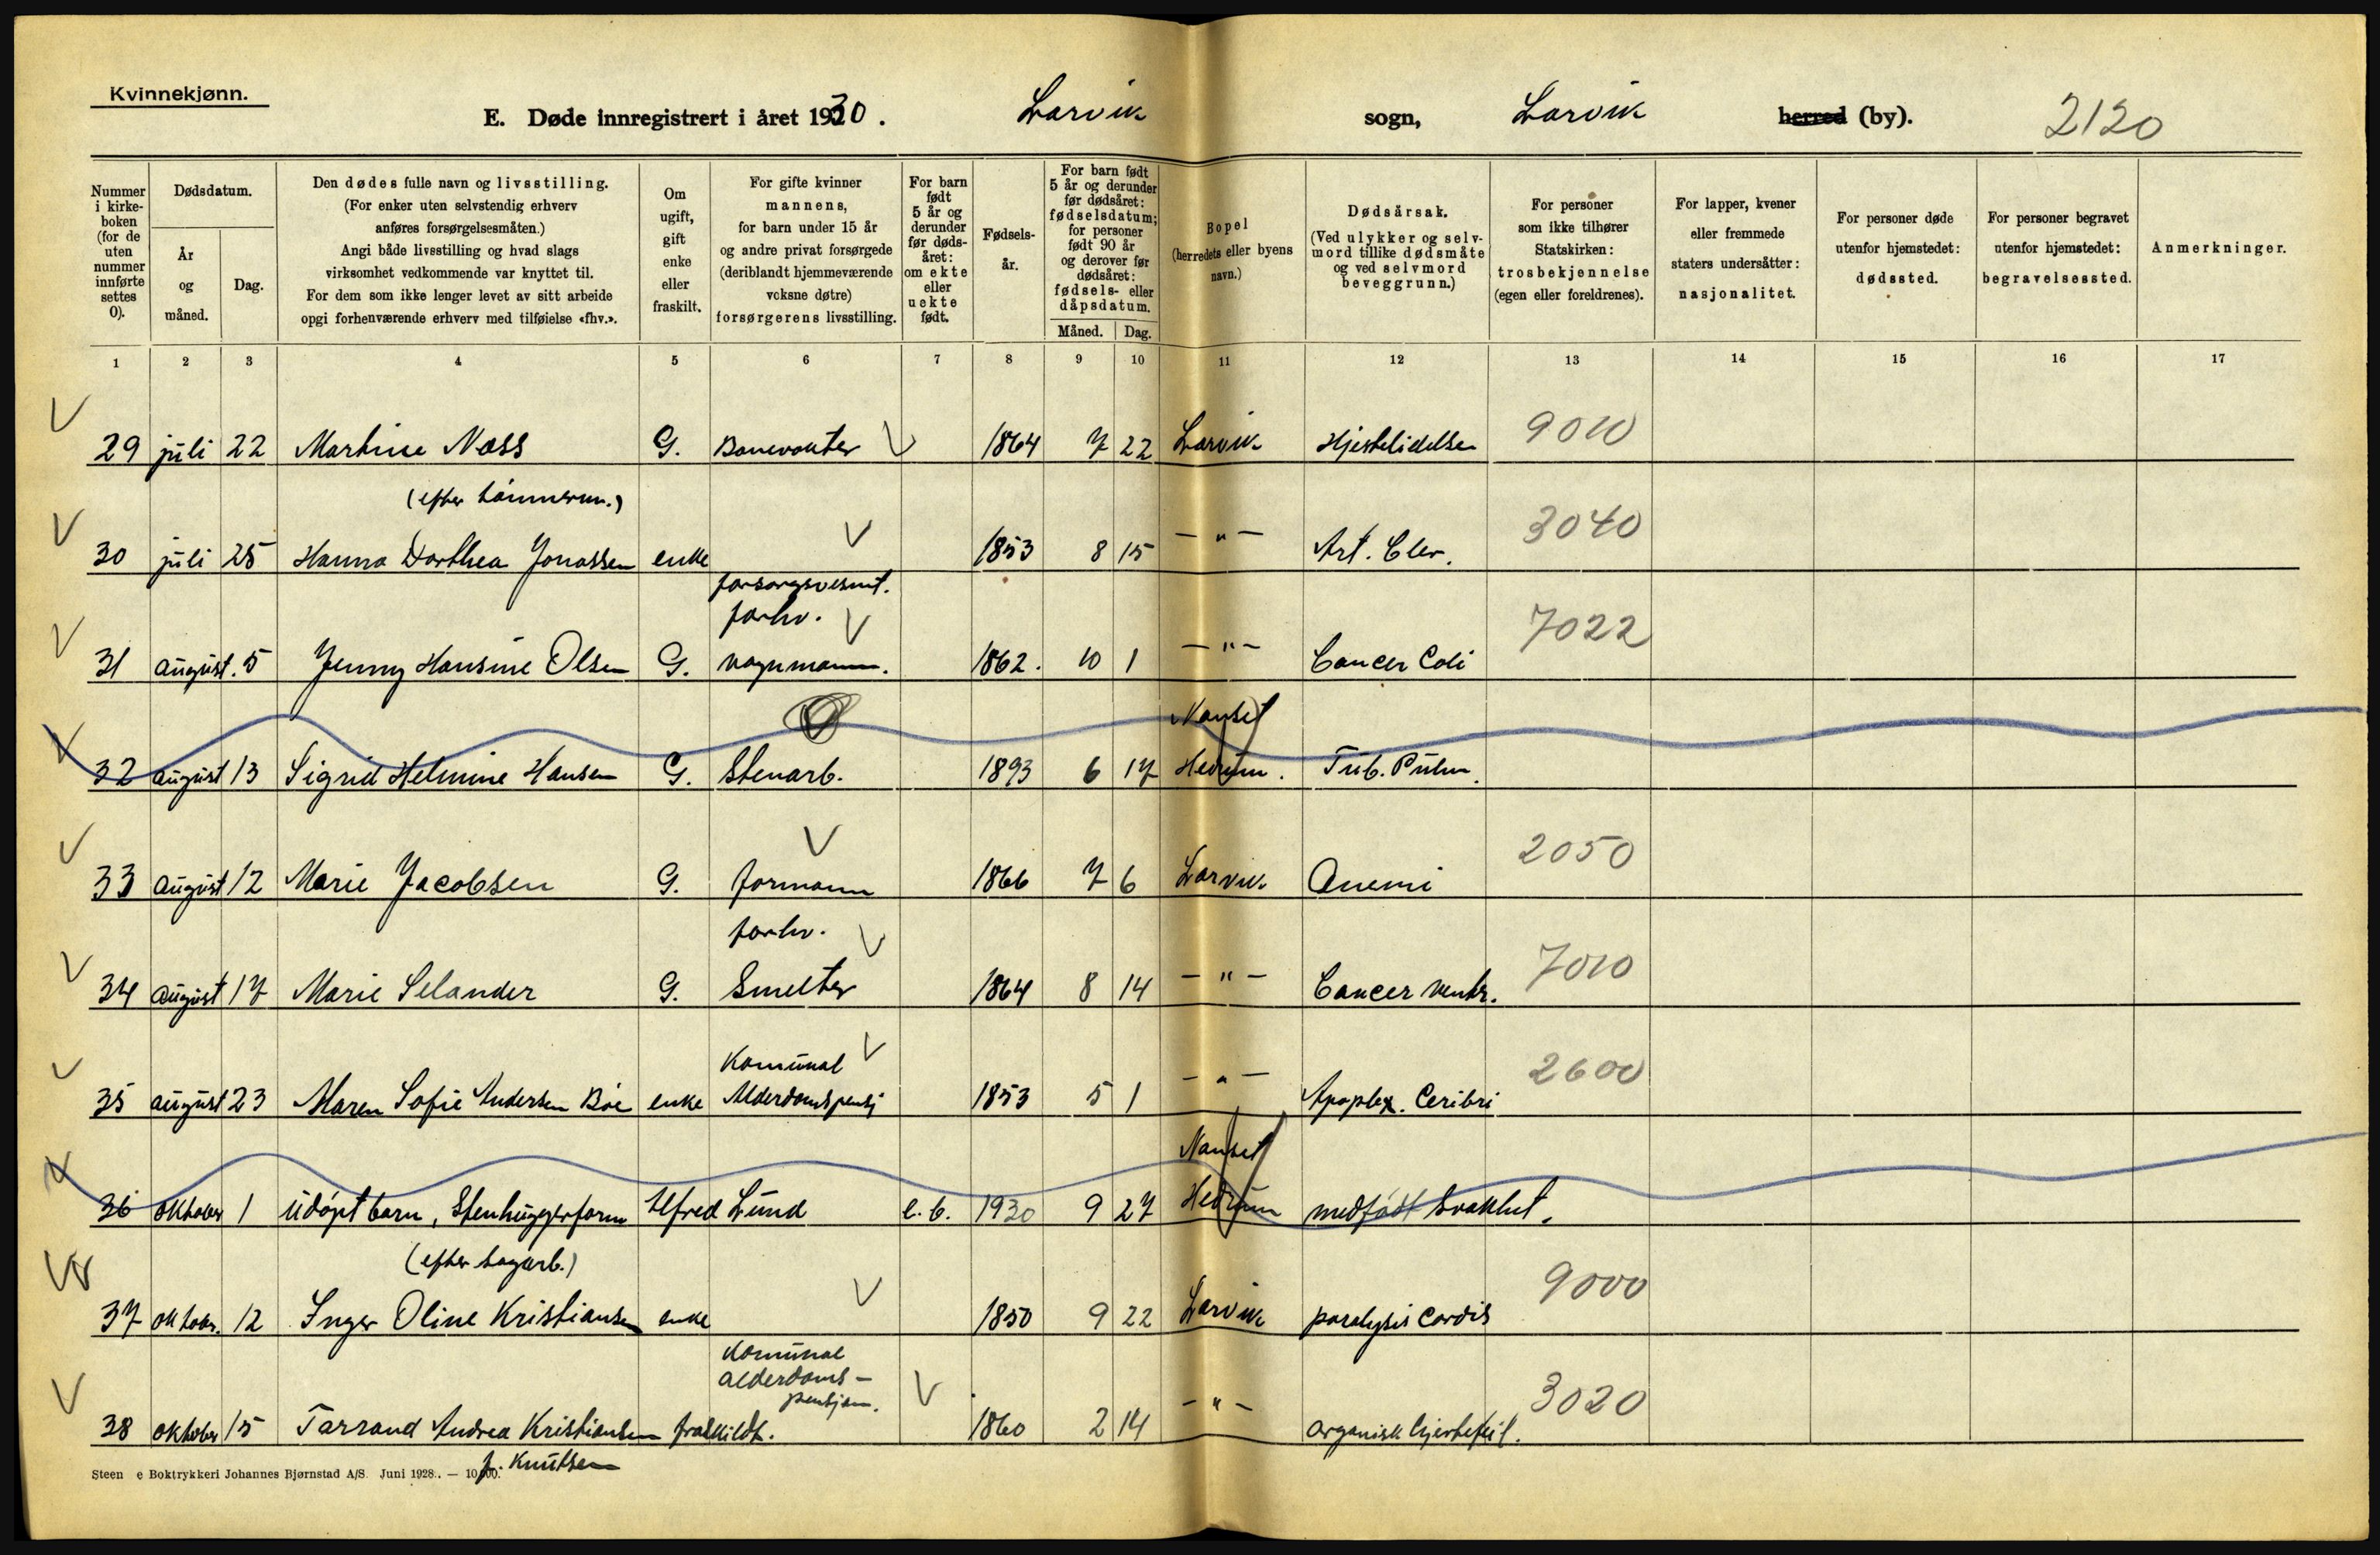 Kvinnekjønn.
E. Døde innregistrert i året 1930. Larvik sogn, Larvik herred (by). 2120
Nummer i kirke-boken (for de uten nummer innførte settes 0).
Dødsdatum.
År og måned.
Dag.
Den dødes fulle navn og livsstilling.
(For enker uten selvstendig erhverv
anføres forsørgelsesmåten.)
Angi både livsstilling og hvad slags
virksomhet vedkommende var knyttet til.
For dem som ikke lenger levet av sitt arbeide
opgi forhenværende erhverv med tilføielse «fhv.».
Om ugift, gift enke eller fraskilt.
For gifte kvinner
mannens,
for barn under 15 år
og andre privat forsørgede
(deriblandt hjemmeværende
voksne døtre)
forsørgerens livsstilling.
For barn født 5 år og derunder før døds-året: om ekte eller uekte født.
Fødsels-år.
For barn født 5 år og derunder før dødsåret: fødselsdatum; for personer født 90 år og derover før dødsåret: fødsels- eller dåpsdatum.
Måned. Dag.
Bopel
(herredets eller byens
navn.)
Dødsårsak.
(Ved ulykker og selv-
mord tillike dødsmåte
og ved selvmord
beveggrunn.)
For personer
som ikke tilhører
Statskirken:
trosbekjennelse
(egen eller foreldrenes).
For lapper, kvener
eller fremmede
staters undersåtter:
nasjonalitet.
For personer døde
utenfor hjemstedet:
dødssted.
For personer begravet
utenfor hjemstedet:
begravelsessted.
Anmerkninger.
1 2 3 4 5 6 7 8 9 10 11 12 13 14 15 16 17
29 juli 22 Martine Næss G. Banevokter 1864 7 22 Larvik Hjertelidelse 9010
(efter tømmerm.)
30 juli 25 Hanna Dorthea Jonassen enke 1853 8 15 — " — Art. Cler. 3040
forsorgsvesent.
forhv.
31 august. 5 Jenny Hansine Olsen G. vognmann. 1862. 10 1 — " — Cancer Coli 7022
Nanset
32 august 13 Sigrid Helmine Hansen G. Stenarb. 1893 6 17 Hedrum. Tub. Pulm.
33 august 12 Marie Jacobsen G. formann 1866 7 6 Larvik Anemi 2050
forhv.
34 august 17 Marie Selander G. Smelter 1864 8 14 — " — Cancer ventr. 7010
Komunal
35 august 23 Maren Sofie Andersen Bøe enke Alderdomspensj 1853 5 1 — " — Apoplex. Ceribri 2600
Nanset
36 oktober 1 udøpt barn, Stenhuggerform Alfred Lund e. b. 1930 9 27 Hedrum medfødt svakhet.
(efter sagarb.)
37 oktobr. 12 Inger Oline Kristiansen enke 1850 9 22 Larvik paralysis Cordis 9000
Komunal
alderdoms-
pensjon.
38 oktober 15 Tarrand Andrea Kristiansen fraskildt. 1860 2 14 — " — organisk hjertefeil. 3020
f. Knutsen
Steen e Boktrykkeri Johannes Bjørnstad A/S. Juni 1928. — 10,000.